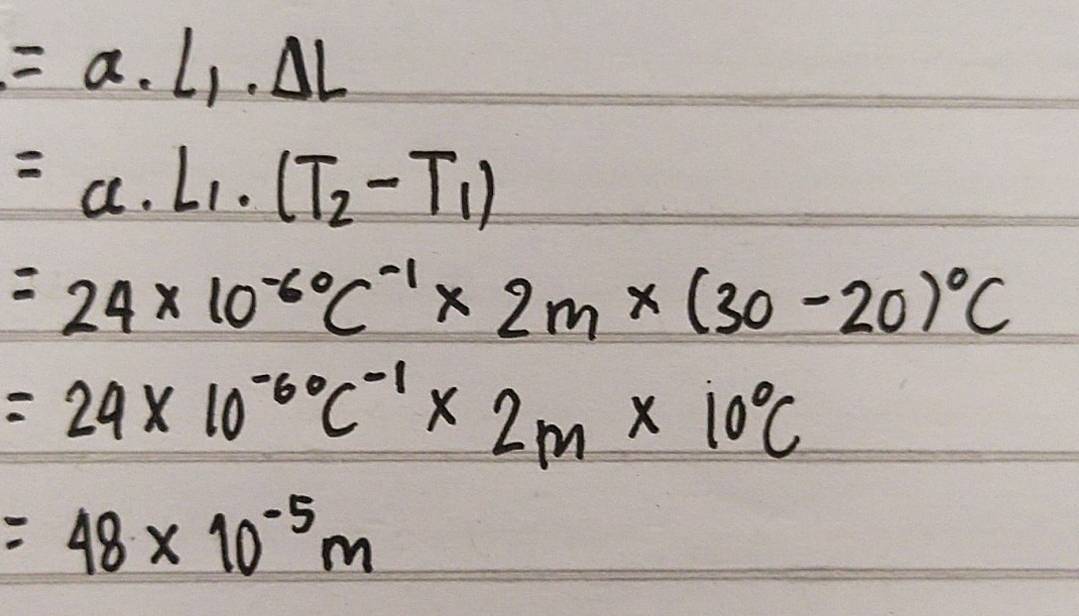 .= α.L₁.ΔL
= α.L₁.(T₂-T₁)
= 24 x 10⁻⁶°C⁻¹ x 2m x (30-20)°C
= 24 x 10⁻⁶°C⁻¹ x 2m x 10°C
= 48 x 10⁻⁵m